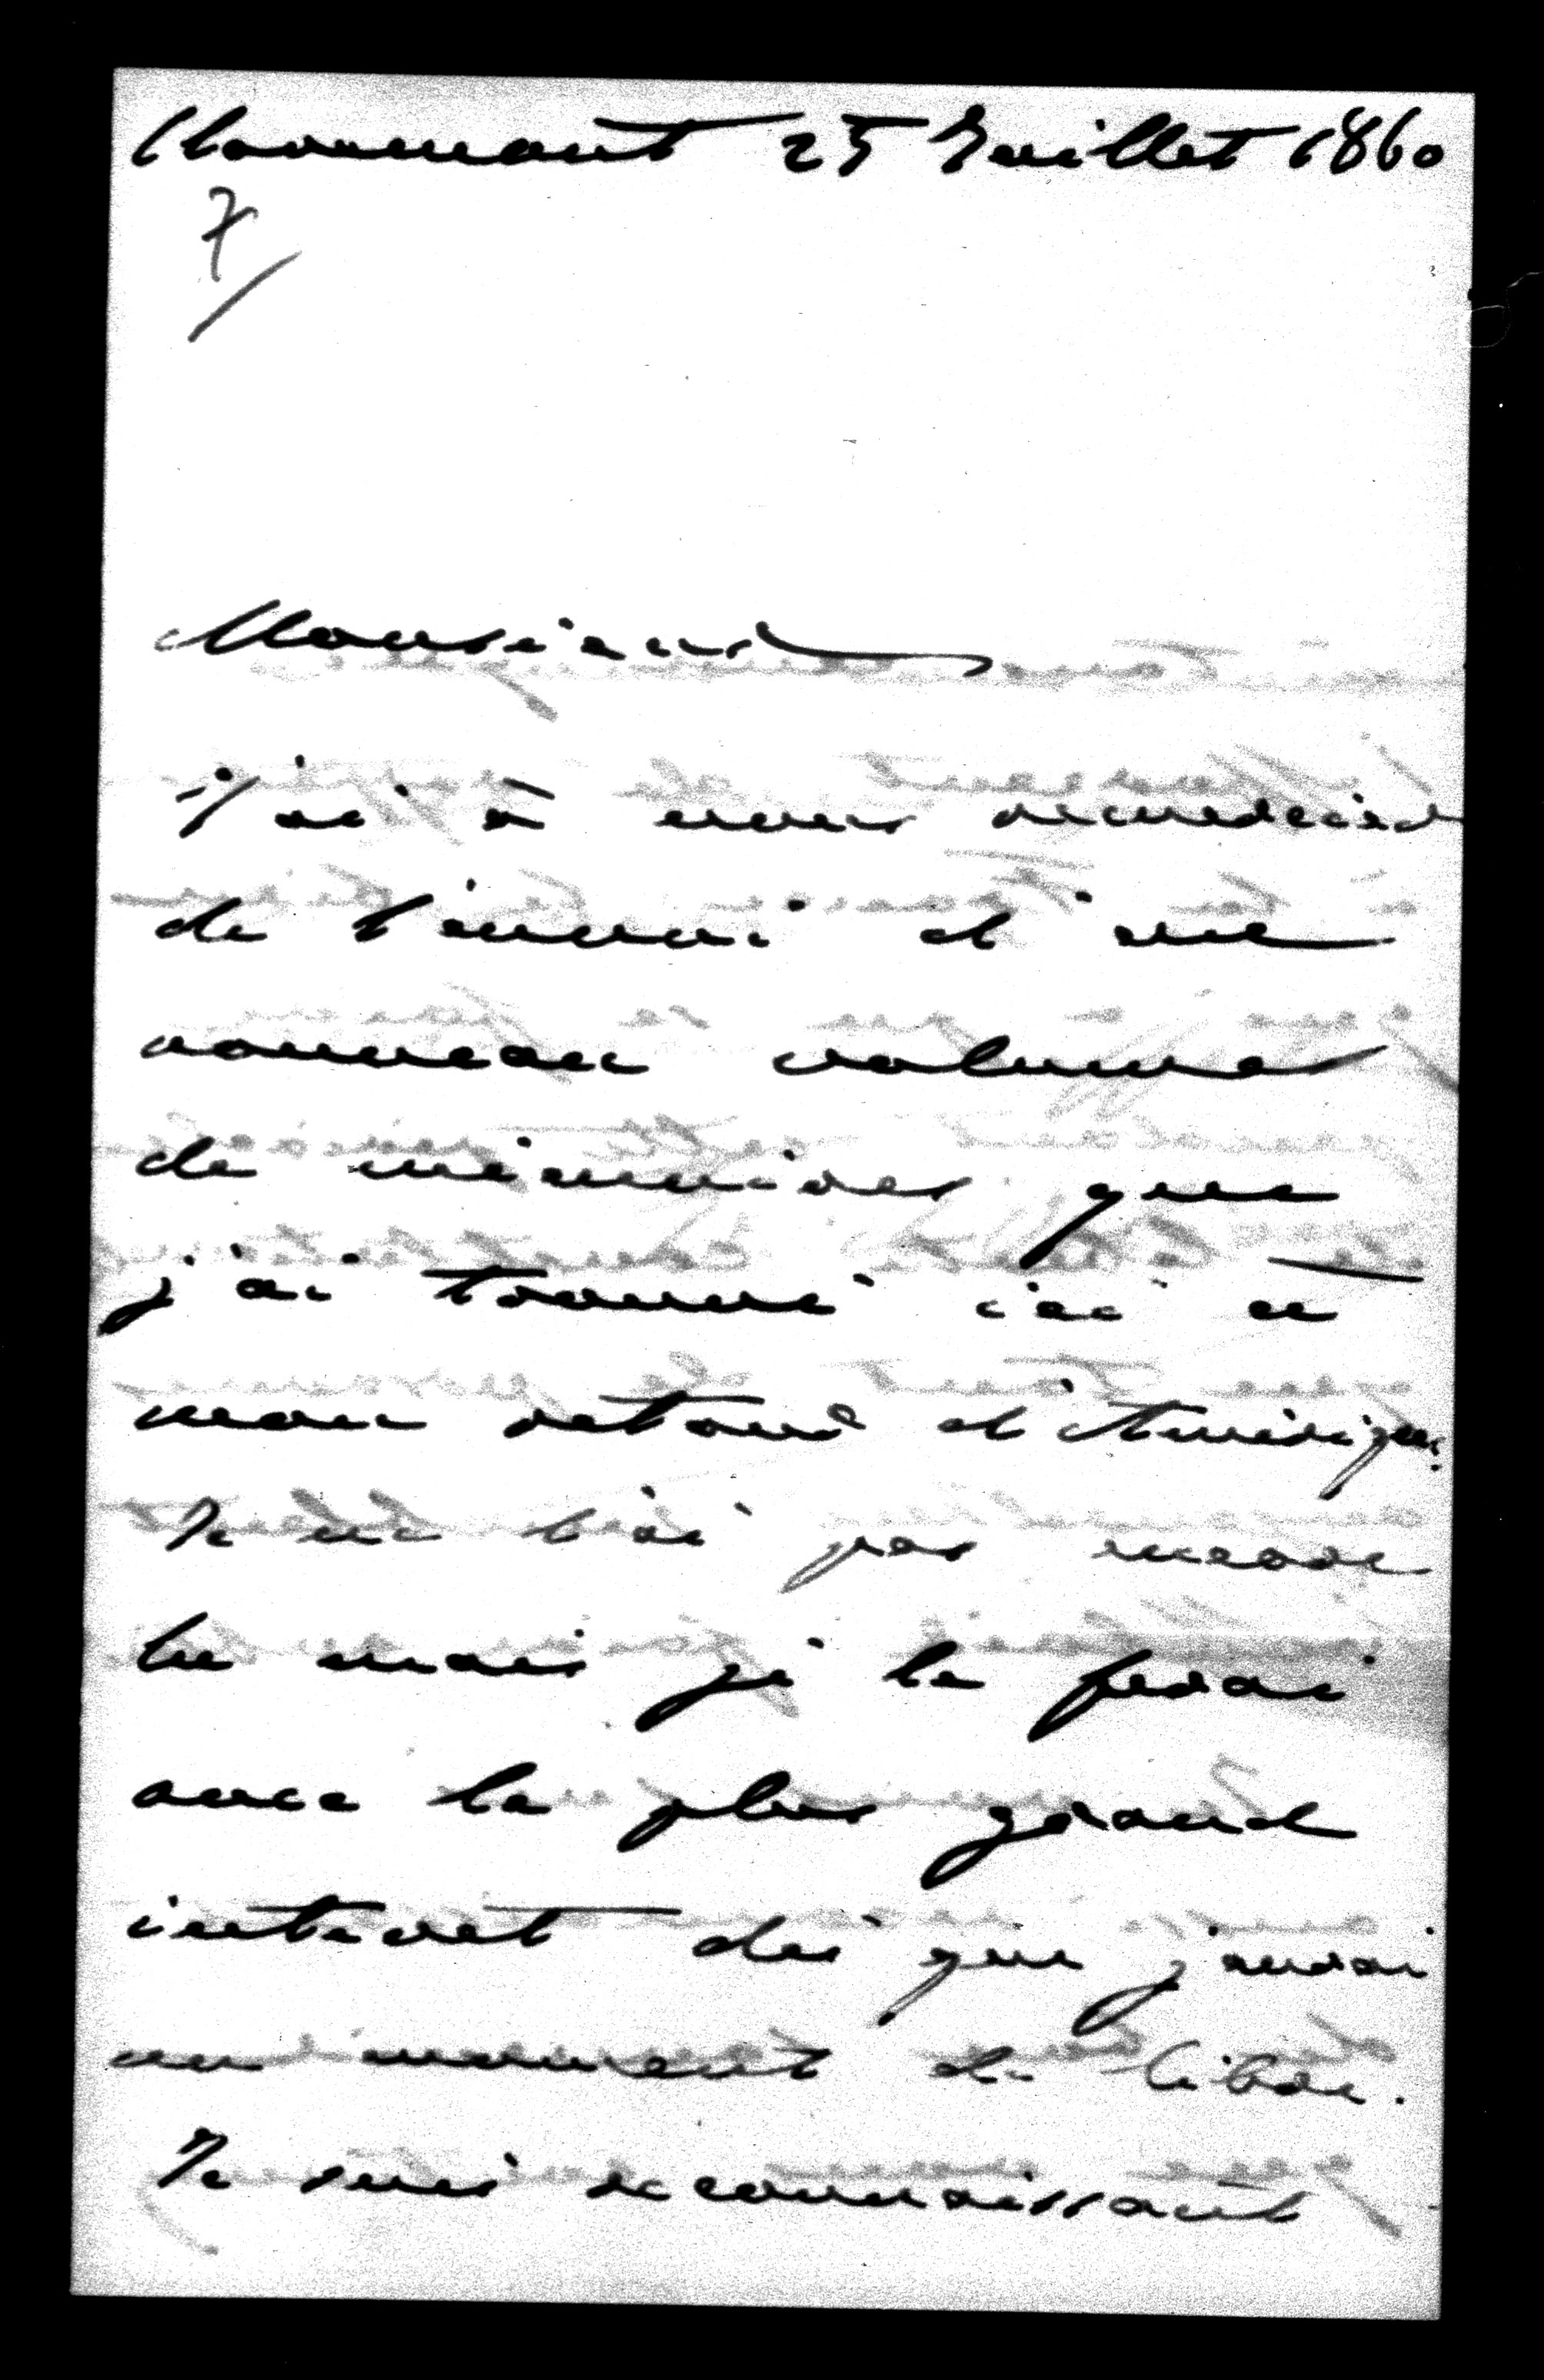 Claremont 25 Juillet 1860
7
Monsieur
J'ai à vous remercier
de l'envoi d'un
nouveau volume
de mémoires que
j'ai trouvé ici à
mon retour d'Amérique.
Je ne l'ai pas encore
lu mais je le ferai
avec le plus grand
interet dès que j'aurai
un moment de libre.
Je suis reconnaissant